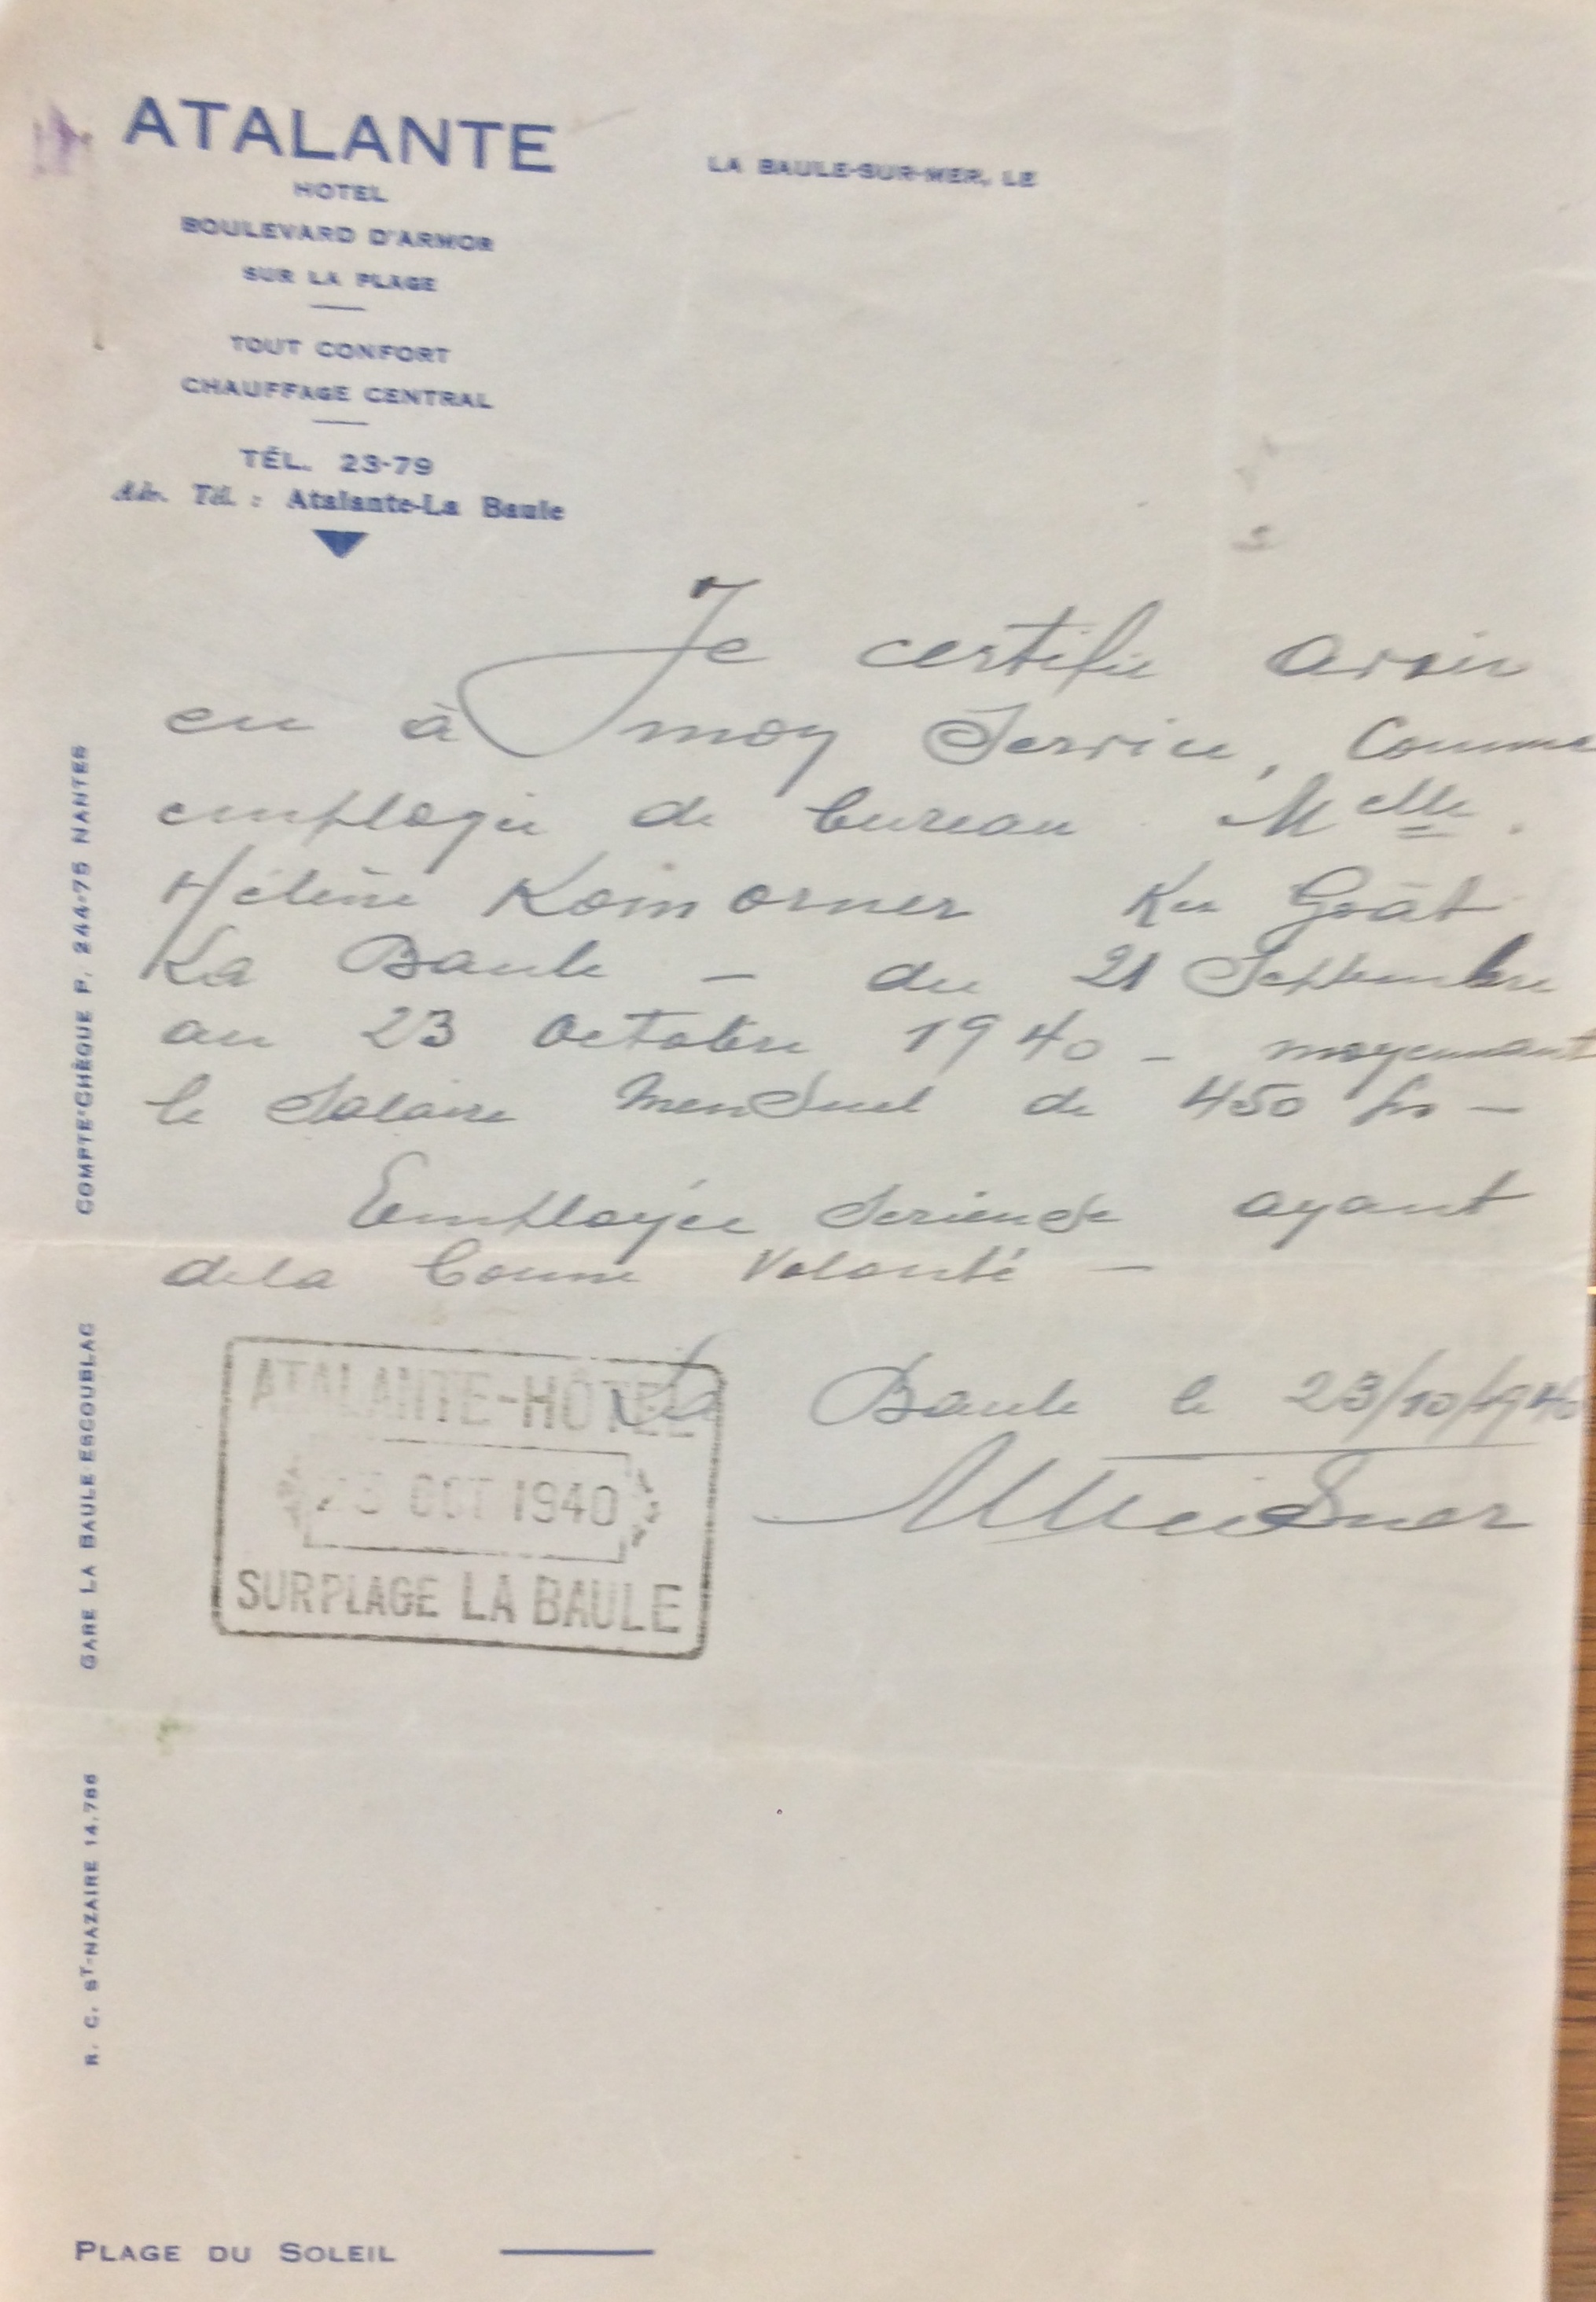 ATALANTE
HOTEL
BOULEVARD D'ARMOR
SUR LA PLAGE
TOUT CONFORT
CHAUFFAGE CENTRAL
TÉL. 23-79
Adr. Tél. : Atalante-La Baule
LA BAULE-SUR-MER, LE
Je certifie avoir
eu à mon Service, Comme
employée de bureau Melle
Hélène Komorner Ker Goât
La Baule - du 21 Septembre
au 23 Octobre 1940 - moyennant
le Salaire Mensuel de 450 frs -
Employée Serieuse ayant
de la bonne Volonté -
La Baule le 23/10/1940
ATALANTE-HÔTEL
23 OCT 1940
SUR PLAGE LA BAULE
COMPTE-CHÈQUE P. 244-75 NANTES
GARE LA BAULE-ESCOUBLAC
R. C. ST-NAZAIRE 14.786
PLAGE DU SOLEIL